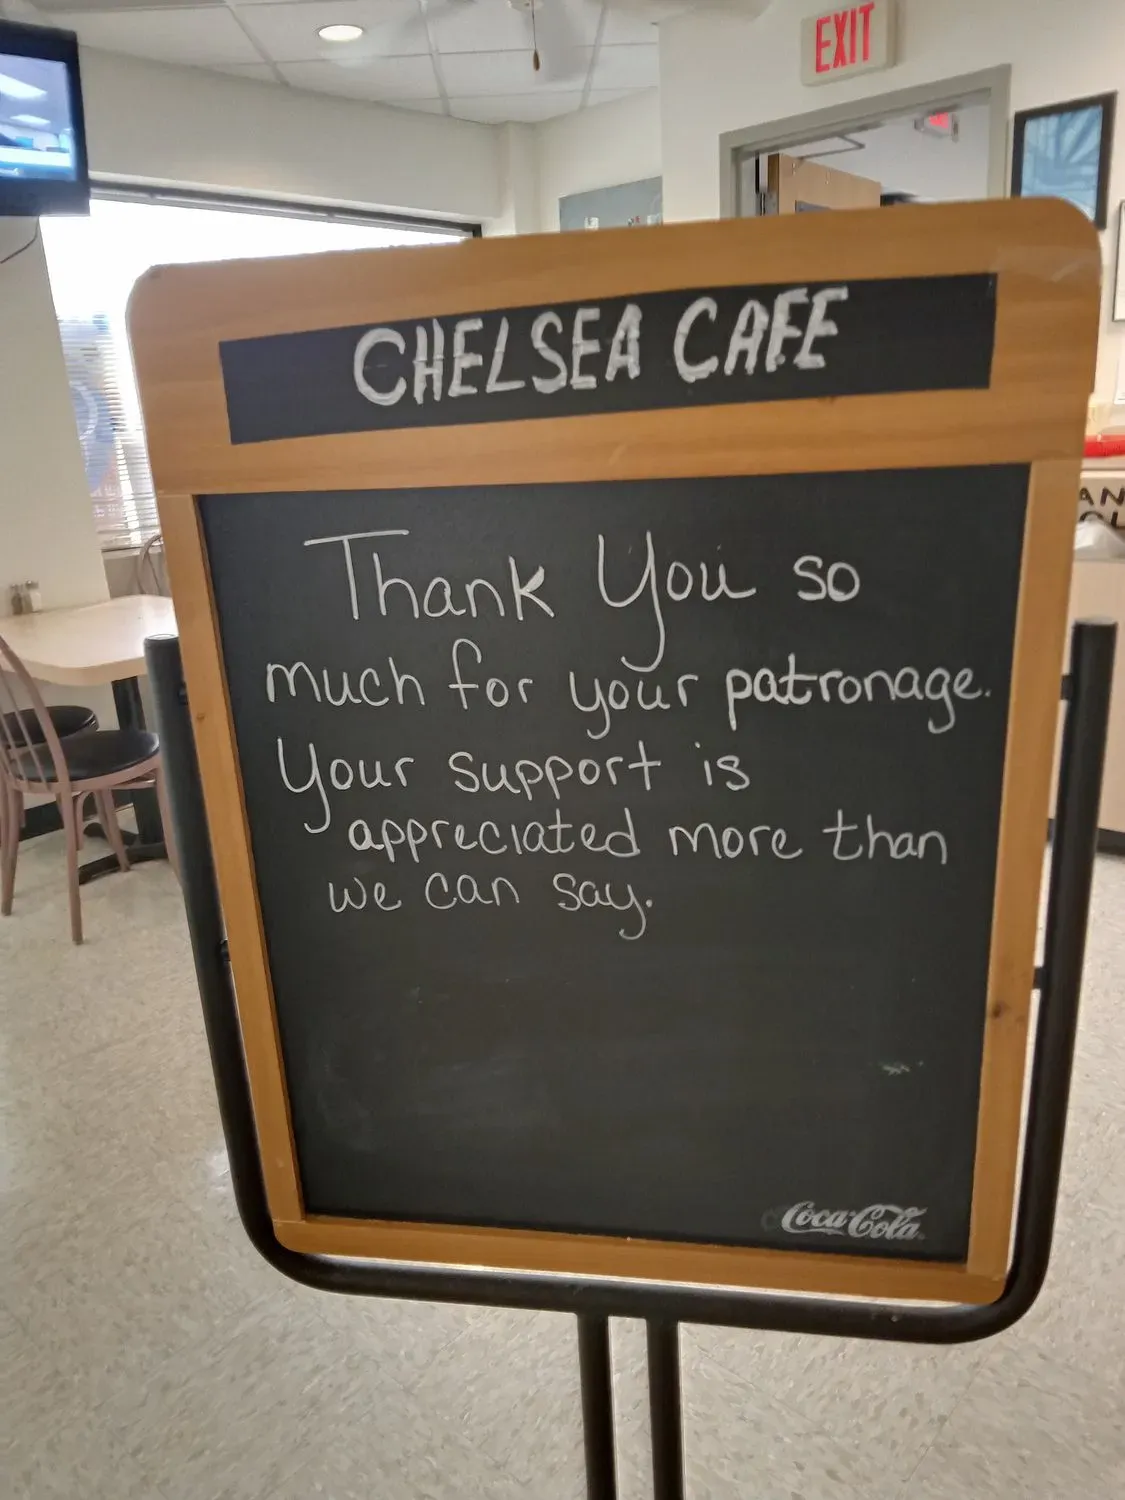 EXIT
CHELSEA CAFE
Thank You so
much for your patronage.
Your support is
appreciated more than
we can say.
Coca-Cola